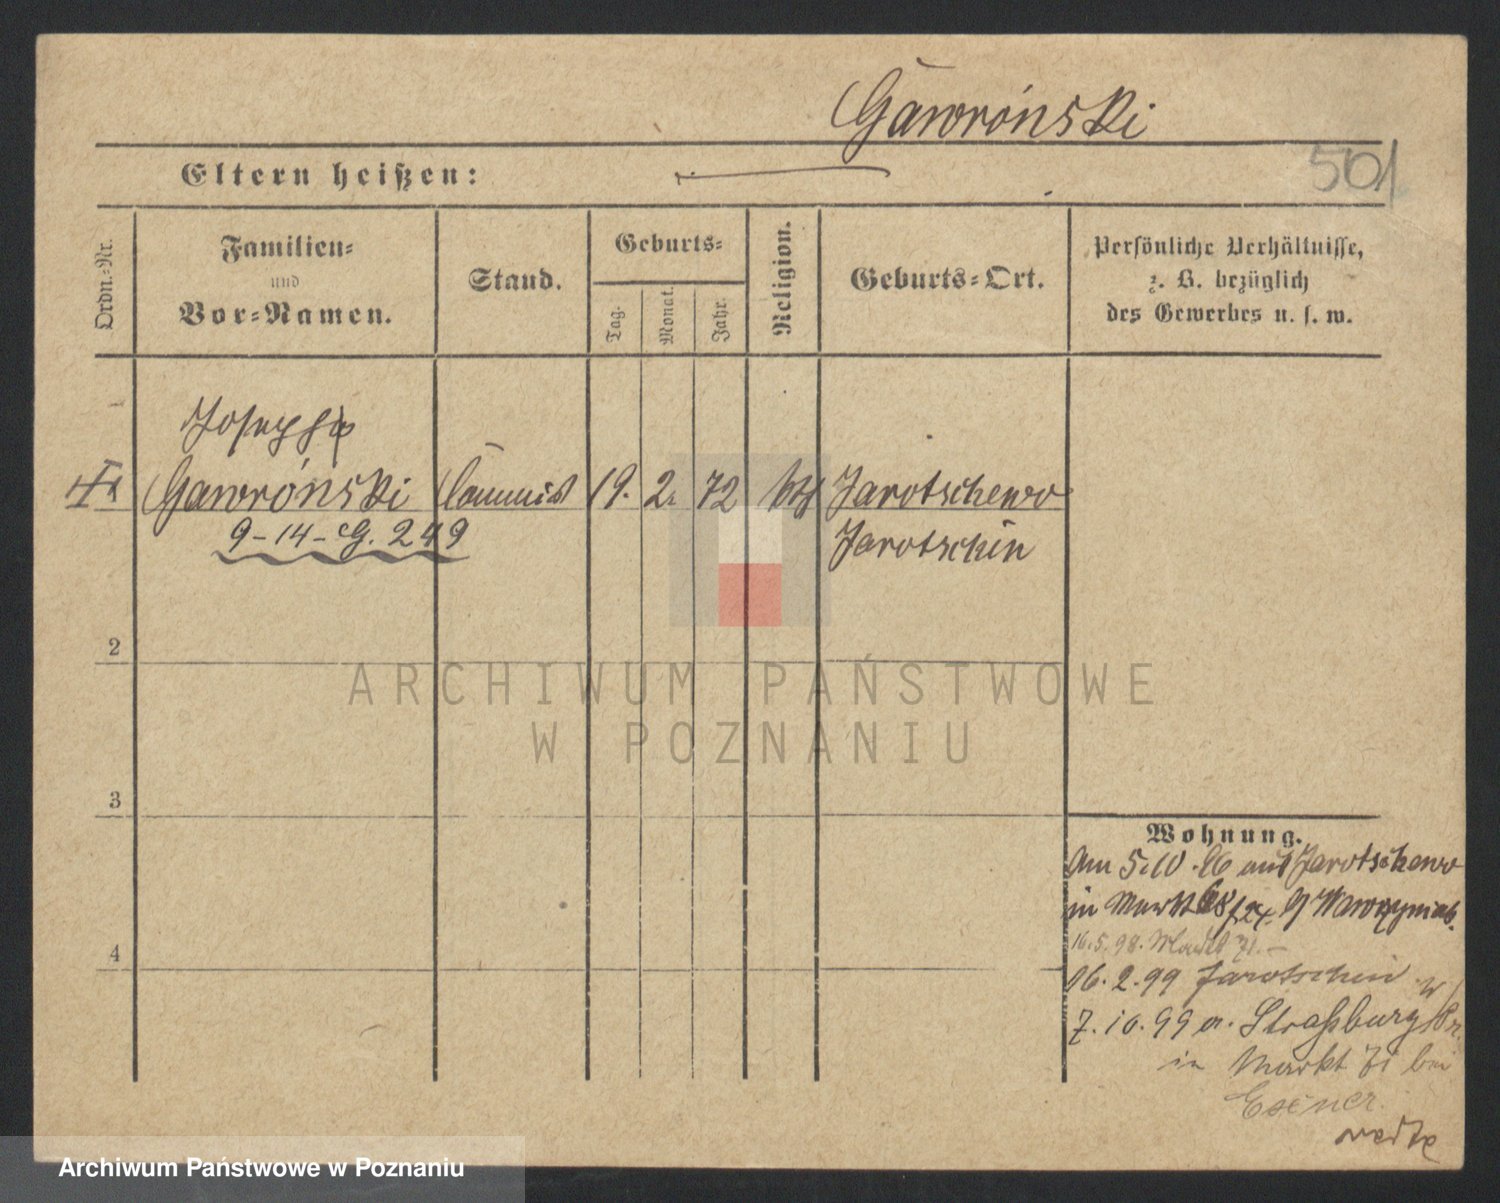 Gawroński
501
Eltern heißen:
Ordn.-Nr.
Familien-
und
Vor-Namen.
Stand.
Geburts-
Tag.
Monat.
Jahr.
Religion.
Geburts-Ort.
Persönliche Verhältnisse,
z. B. bezüglich
des Gewerbes u. s. w.
Joseph
Gawroński Commis 19. 2. 72 kth Jarotschewo
9-14-G. 249
Jarotschin
2
3
4
Wohnung.
Am 5.10.86 aus Jarotschewo
in Markt 68 G Wawrzyniak.
16.5.98. Markt 71.-
16.2.99 Jarotschin
7.10.99 a. Straßburg W/Pr.
in Markt 71 bei
ARCHIWUM PAŃSTWOWE
W POZNANIU
Archiwum Państwowe w Poznaniu